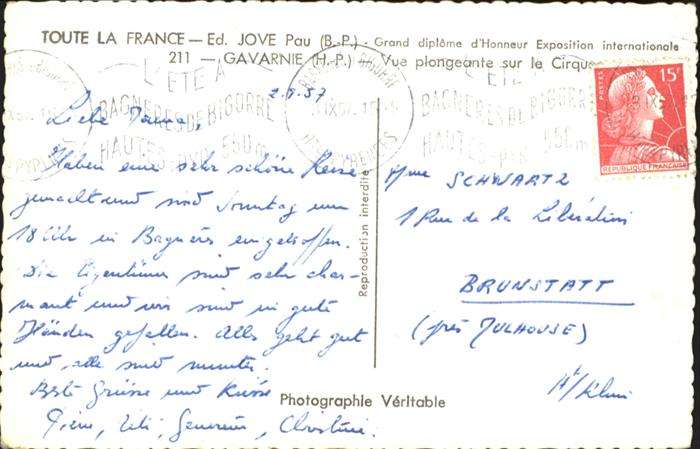 TOUTE LA FRANCE — Ed. JOVE Pau (B.-P.) - Grand diplôme d'Honneur Exposition internationale
211 - GAVARNIE (H.-P.) — Vue plongeante sur le Cirque
L'ÉTÉ A
BAGNÈRES DE BIGORRE
HAUTES-PYR. 550m
L'ÉTÉ
BAGNÈRES DE BIGORRE
HAUTES-PYR 550m
HTES PYRENEES
POSTES 15F
REPUBLIQUE FRANÇAISE
2.9.57
Liebe Mama,
Haben eine sehr schöne Reise
gemacht und sind Sonntag um
18 Uhr in Bagnères eingetroffen.
Die Eigentümer sind sehr char-
mant und wir sind in gute
Händen gefallen. Alles geht gut
und alle sind munter.
Beste Grüsse und Küsse
Pierre, Lili, Christine.
Reproduction interdite
Mme SCHWARTZ
1 Rue de la Libération
BRUNSTATT
(près MULHOUSE)
Ht/Rhin
Photographie Véritable